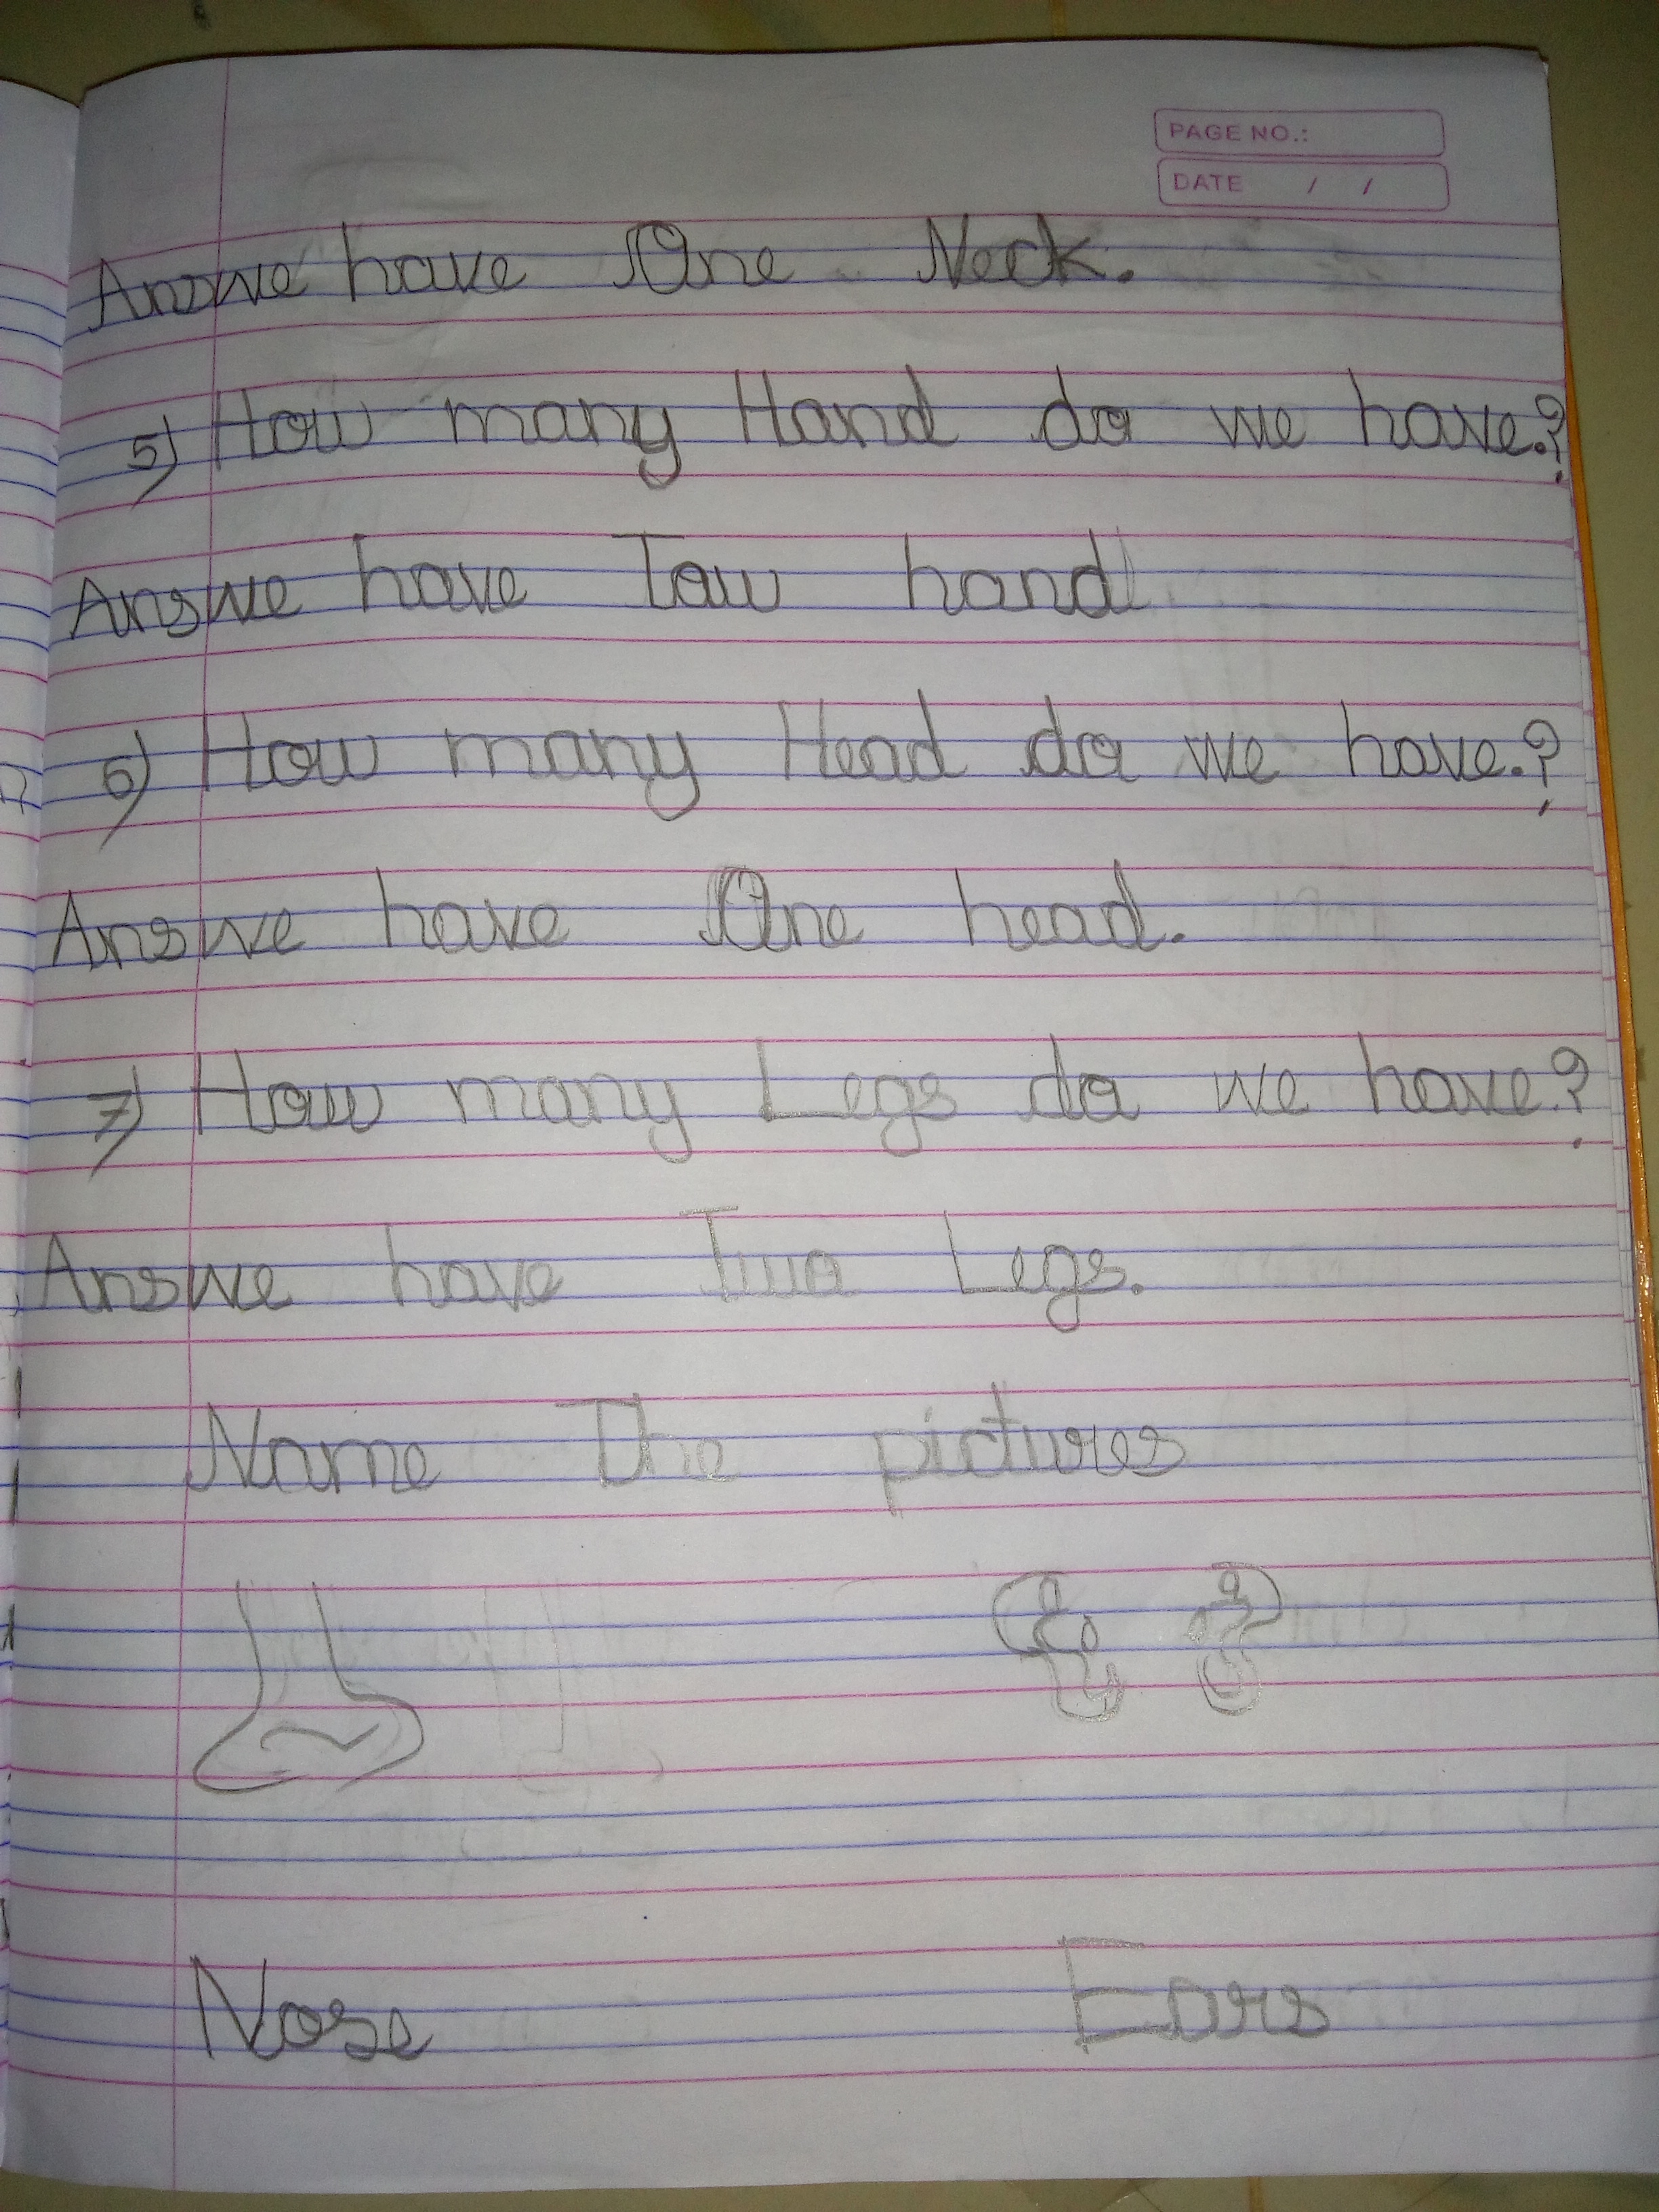 PAGE NO.:
DATE / /
Answe have One Neck.
5) How many Hand do we have.?
Answe have Taw hand
6) How many Head do we have.?
Answe have One head.
7) How many Legs do we have?
Answe have Two Legs.
Name The pictures
Nose Ears